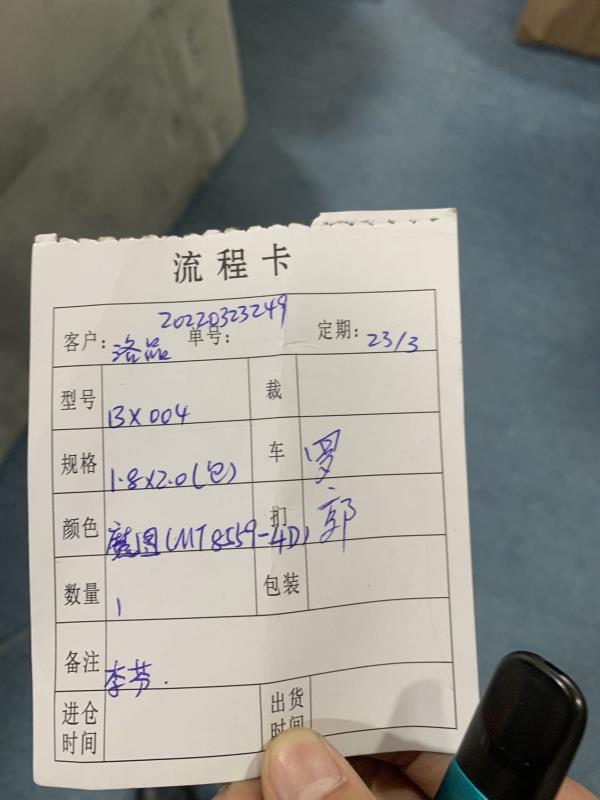 流程卡
20220323249
客户:洛品 单号: 定期:23/3
型号 BX004 裁
规格 1.8x2.0(包) 车 罗
颜色 魔图(MT8559-4D) 扣 郭
数量 1 包装
备注 李芬.
进仓时间 出货时间